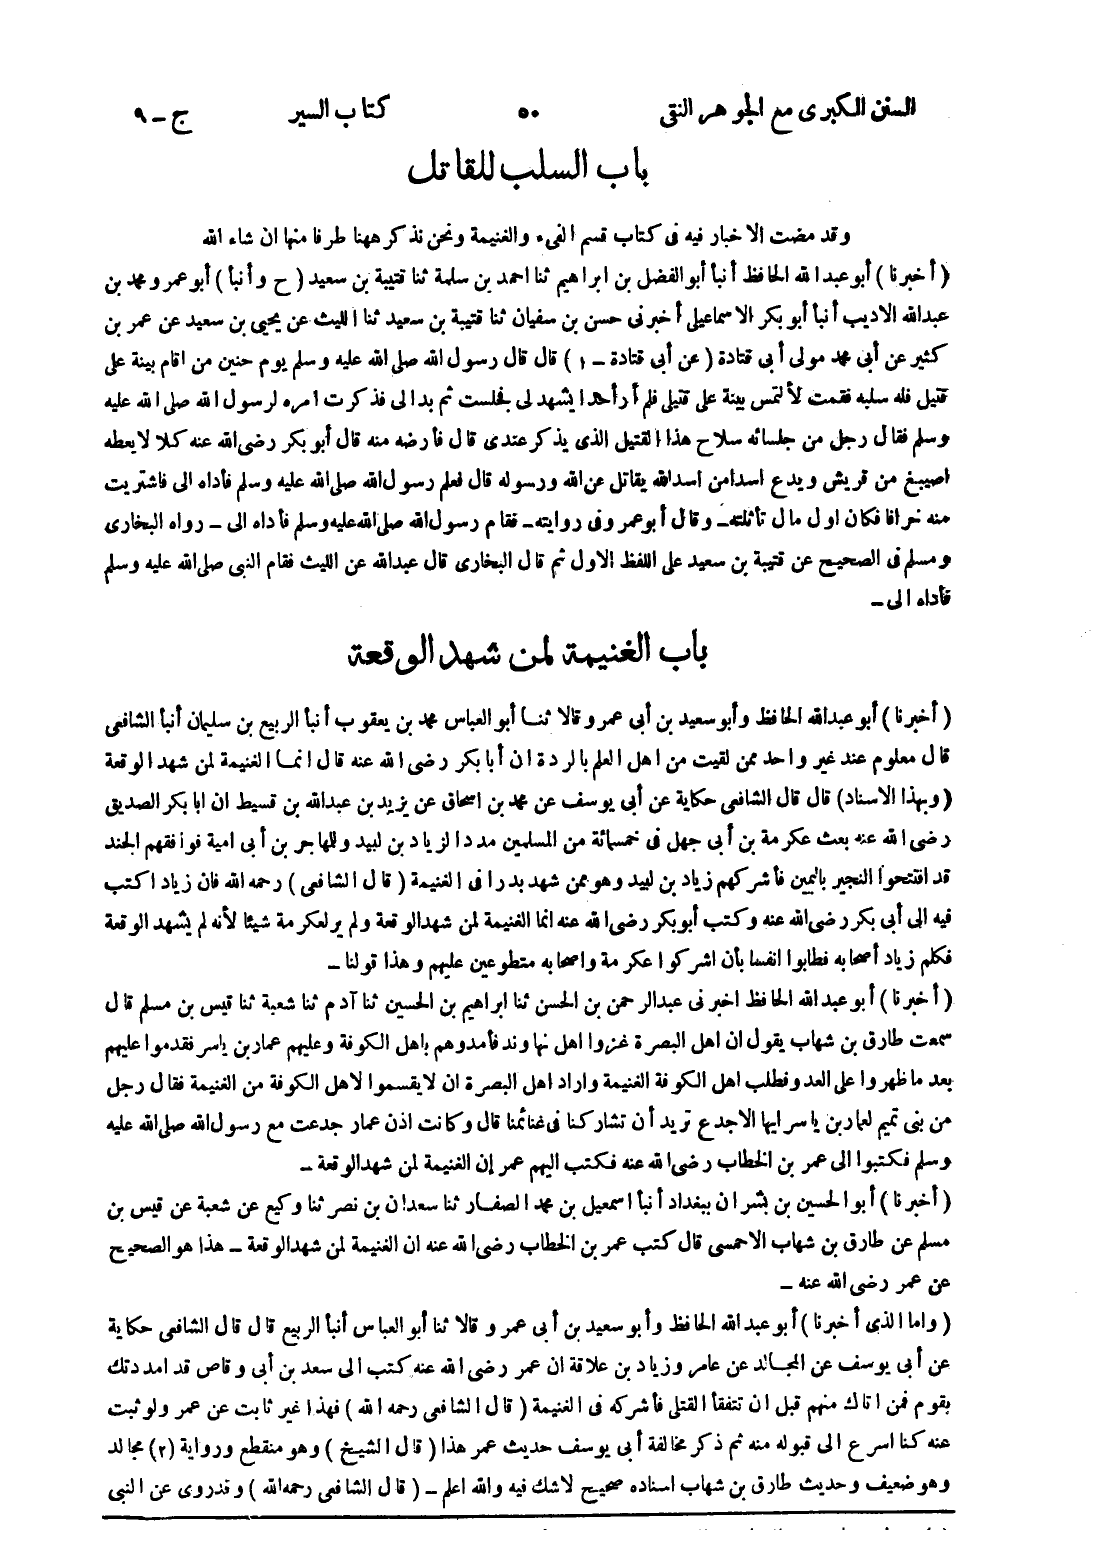 السنن الكبرى مع الجوهر النقى ٥٠ كتاب السير ج - ٩
باب السلب للقاتل
وقد مضت الاخبار فيه فى كتاب قسم الفىء والغنيمة ونحن نذكر ههنا طرفا منها ان شاء الله
( أخبرنا ) أبو عبد الله الحافظ أنبأ أبو الفضل بن ابراهيم ثنا احمد بن سلمة ثنا قتيبة بن سعيد ( ح وأنبأ ) أبو عمر و محمد بن
عبدالله الاديب أنبأ أبو بكر الاسماعيلى أخبرنى حسن بن سفيان ثنا قتيبة بن سعيد ثنا الليث عن يحيى بن سعيد عن عمر بن
كثير عن أبى محمد مولى أبى قتادة ( عن أبى قتادة - ١ ) قال قال رسول الله صلى الله عليه وسلم يوم حنين من اقام بينة على
قتيل فله سلبه فقمت لألتمس بينة على قتيلى فلم أر أحدا يشهد لى فجلست ثم بدا لى فذكرت امره لرسول الله صلى الله عليه
وسلم فقال رجل من جلسائه سلاح هذا القتيل الذى يذكر عندى قال فأرضه منه قال أبو بكر رضى الله عنه كلا لا يعطه
اصيبغ من قريش ويدع اسدا من اسد الله يقاتل عن الله ورسوله قال فعلم رسول الله صلى الله عليه وسلم فأداه الى فاشتريت
منه خرافا فكان اول مال تأثلته - وقال أبو عمر وفى روايته - فقام رسول الله صلى الله عليه وسلم فأداه الى - رواه البخارى
ومسلم فى الصحيح عن قتيبة بن سعيد على اللفظ الاول ثم قال البخارى قال عبدالله عن الليث فقام النبى صلى الله عليه وسلم
فأداه الى -
باب الغنيمة لمن شهد الوقعة
( أخبرنا ) أبو عبدالله الحافظ وأبو سعيد بن أبى عمرو قالا ثنا أبو العباس محمد بن يعقوب أنبأ الربيع بن سليمان أنبأ الشافعى
قال معلوم عند غير واحد ممن لقيت من اهل العلم بالردة ان أبا بكر رضى الله عنه قال انما الغنيمة لمن شهد الوقعة
( وبهذا الاسناد) قال قال الشافعى حكاية عن أبى يوسف عن محمد بن اسحاق عن يزيد بن عبدالله بن قسيط ان ابا بكر الصديق
رضى الله عنه بعث عكرمة بن أبى جهل فى خمسمائة من المسلمين مددا لزياد بن لبيد وللهاجر بن أبى امية فوافقهم الجند
قد افتتحوا النجير باليمن فأشركهم زياد بن لبيد وهو ممن شهد بدرا فى الغنيمة ( قال الشافعى ) رحمه الله فان زيادا كتب
فيه الى أبى بكر رضى الله عنه وكتب أبو بكر رضى الله عنه انما الغنيمة لمن شهد الوقعة ولم ير لعكرمة شيئا لأنه لم يشهد الوقعة
فكلم زياد أصحابه فطابوا انفسا بأن اشركوا عكرمة واصحابه متطوعين عليهم وهذا قولنا -
( أخبرنا ) أبو عبدالله الحافظ اخبرنى عبدالرحمن بن الحسن ثنا ابراهيم بن الحسين ثنا آدم ثنا شعبة ثنا قيس بن مسلم قال
سمعت طارق بن شهاب يقول ان اهل البصرة غزوا اهل نهاوند فأمدوهم باهل الكوفة وعليهم عمار بن ياسر فقدموا عليهم
بعد ما ظهروا على العدو فطلب اهل الكوفة الغنيمة واراد اهل البصرة ان لا يقسموا لاهل الكوفة من الغنيمة فقال رجل
من بنى تميم لعمار بن ياسر ايها الاجدع تريد أن تشاركنا فى غنائمنا قال وكانت اذن عمار جدعت مع رسول الله صلى الله عليه
وسلم فكتبوا الى عمر بن الخطاب رضى الله عنه فكتب اليهم عمر إن الغنيمة لمن شهد الوقعة -
( أخبرنا ) أبو الحسين بن بشران ببغداد أنبأ اسمعيل بن محمد الصفار ثنا سعدان بن نصر ثنا وكيع عن شعبة عن قيس بن
مسلم عن طارق بن شهاب الاحمسى قال كتب عمر بن الخطاب رضى الله عنه ان الغنيمة لمن شهد الوقعة - هذا هو الصحيح
عن عمر رضى الله عنه -
( واما الذى أخبرنا ) أبو عبد الله الحافظ وأبو سعيد بن أبى عمرو قالا ثنا أبو العباس أنبأ الربيع قال قال الشافعى حكاية
عن أبى يوسف عن المجالد عن عامر وزياد بن علاقة ان عمر رضى الله عنه كتب الى سعد بن أبى وقاص قد امددتك
بقوم فمن اتاك منهم قبل ان تتفقأ القتلى فأشركه فى الغنيمة ( قال الشافعى رحمه الله ) فهذا غير ثابت عن عمر ولو ثبت
عنه كنا اسرع الى قبوله منه ثم ذكر مخالفة أبى يوسف حديث عمر هذا ( قال الشيخ ) وهو منقطع ورواية (٢) مجالد
وهو ضعيف وحديث طارق بن شهاب اسناده صحيح لا شك فيه والله اعلم - ( قال الشافعى رحمه الله ) وقد روى عن النبى